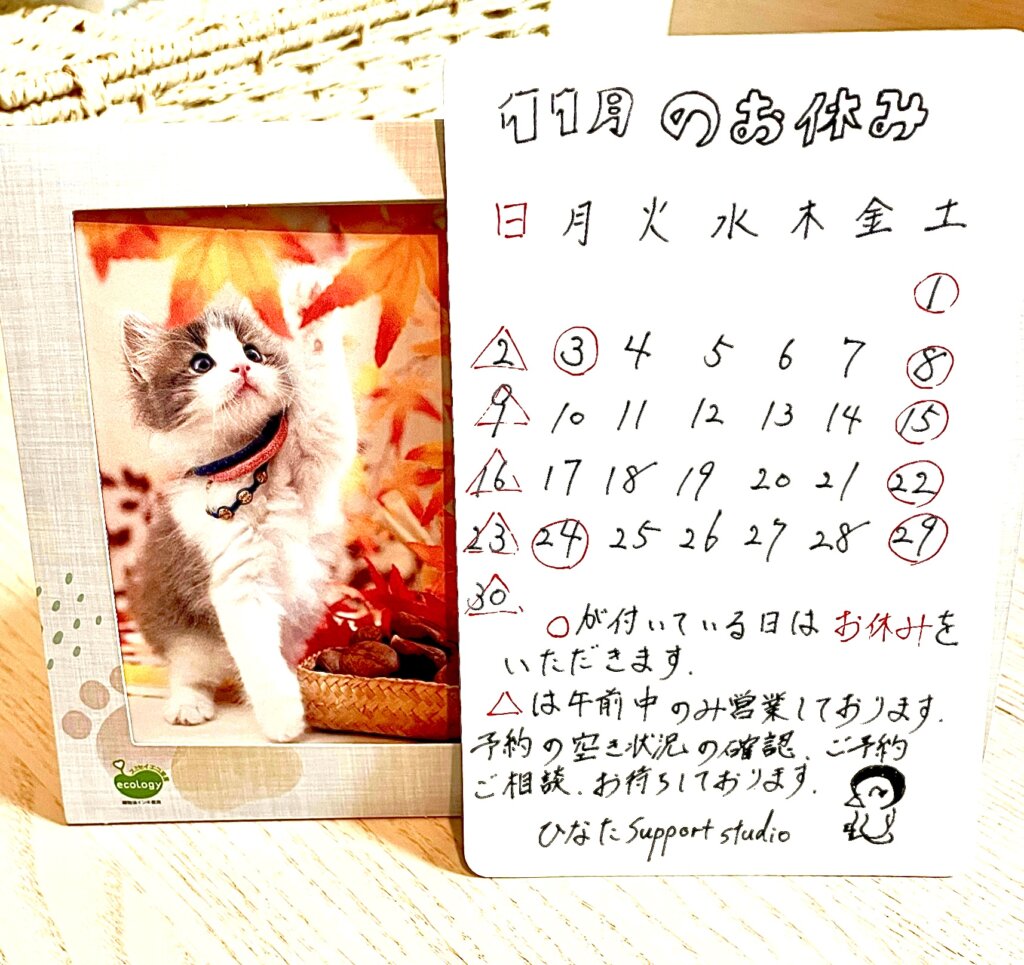 11月のお休み
日 月 火 水 木 金 土
1
2 3 4 5 6 7 8
9 10 11 12 13 14 15
16 17 18 19 20 21 22
23 24 25 26 27 28 29
30
○が付いている日はお休みを
いただきます.
△は午前中のみ営業しております.
予約の空き状況の確認、ご予約
ご相談、お待ちしております.
ひなたSupport studio
ecology